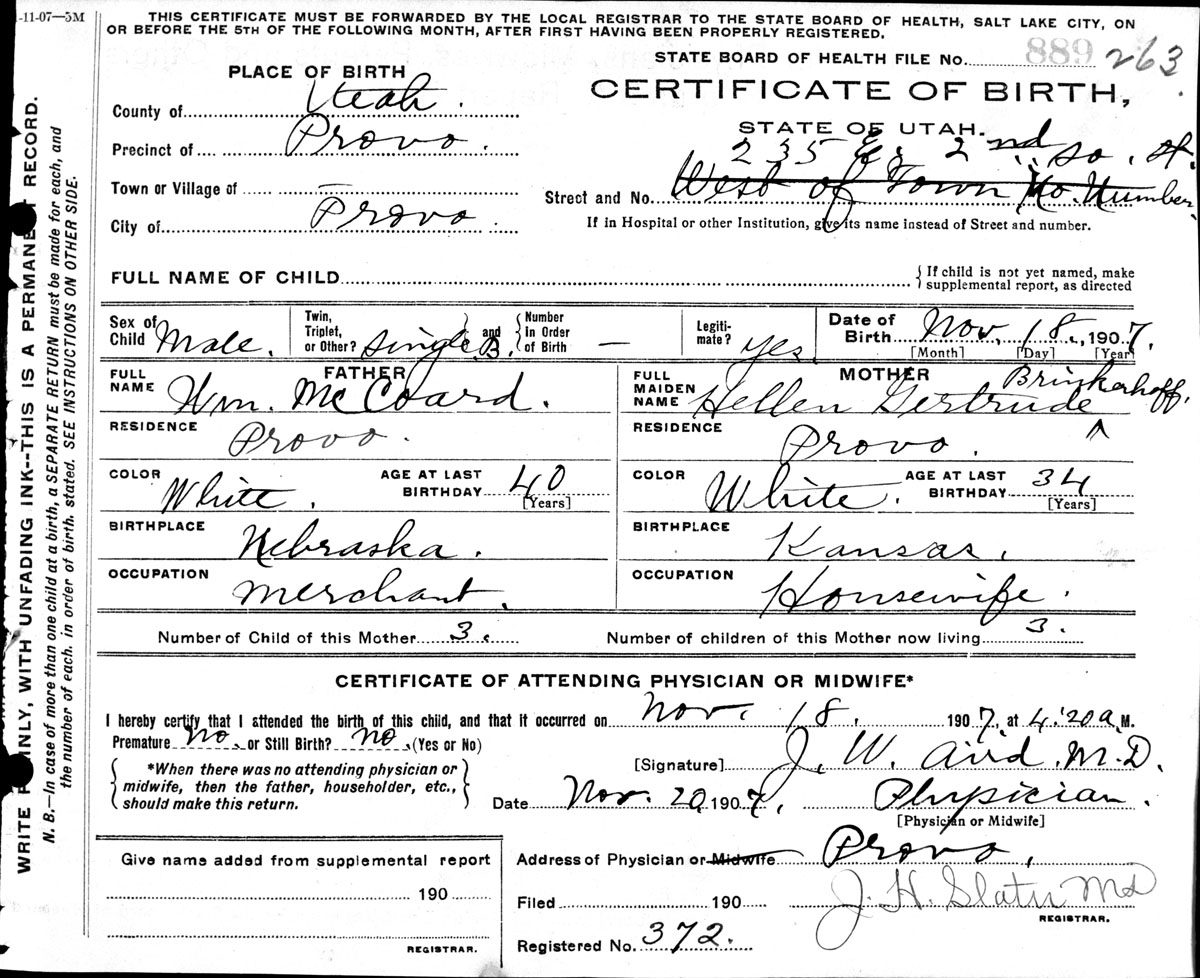 -11-07—5M
THIS CERTIFICATE MUST BE FORWARDED BY THE LOCAL REGISTRAR TO THE STATE BOARD OF HEALTH, SALT LAKE CITY, ON
OR BEFORE THE 5TH OF THE FOLLOWING MONTH, AFTER FIRST HAVING BEEN PROPERLY REGISTERED.
STATE BOARD OF HEALTH FILE No. 889 263
PLACE OF BIRTH
CERTIFICATE OF BIRTH,
STATE OF UTAH.
County of Utah.
Precinct of Provo.
Town or Village of —
City of Provo
235 E. 2nd So. St.
Street and No. West of Town No Number
If in Hospital or other Institution, give its name instead of Street and number.
FULL NAME OF CHILD
{If child is not yet named, make
supplemental report, as directed
Sex of Child Male.
Twin, Triplet, or Other? Single B. and Number In Order of Birth —
Legiti-mate? yes.
Date of Birth Nov. 18., 1907.
[Month] [Day] [Year]
FATHER
FULL NAME Wm. McCoard.
RESIDENCE Provo.
COLOR White. AGE AT LAST BIRTHDAY 40 [Years]
BIRTHPLACE Nebraska.
OCCUPATION Merchant.
MOTHER
FULL MAIDEN NAME Hellen Gertrude Brinkerhoff.
RESIDENCE Provo.
COLOR White. AGE AT LAST BIRTHDAY 34 [Years]
BIRTHPLACE Kansas.
OCCUPATION Housewife.
Number of Child of this Mother 3. Number of children of this Mother now living 3.
CERTIFICATE OF ATTENDING PHYSICIAN OR MIDWIFE*
I hereby certify that I attended the birth of this child, and that it occurred on Nov. 18, 1907, at 4:20 a M.
Premature No. or Still Birth? No. (Yes or No)
*When there was no attending physician or
midwife, then the father, householder, etc.,
should make this return.
[Signature] J. W. Aird. M.D.
Date Nov. 20, 1907, Physician.
[Physician or Midwife]
Give name added from supplemental report
190
REGISTRAR.
Address of Physician or Midwife Provo,
Filed 190 J. H. Slater MD
REGISTRAR.
Registered No. 372.
WRITE PLAINLY, WITH UNFADING INK--THIS IS A PERMANENT RECORD.
N. B.—In case of more than one child at a birth, a SEPARATE RETURN must be made for each, and
the number of each, in order of birth, stated. SEE INSTRUCTIONS ON OTHER SIDE.